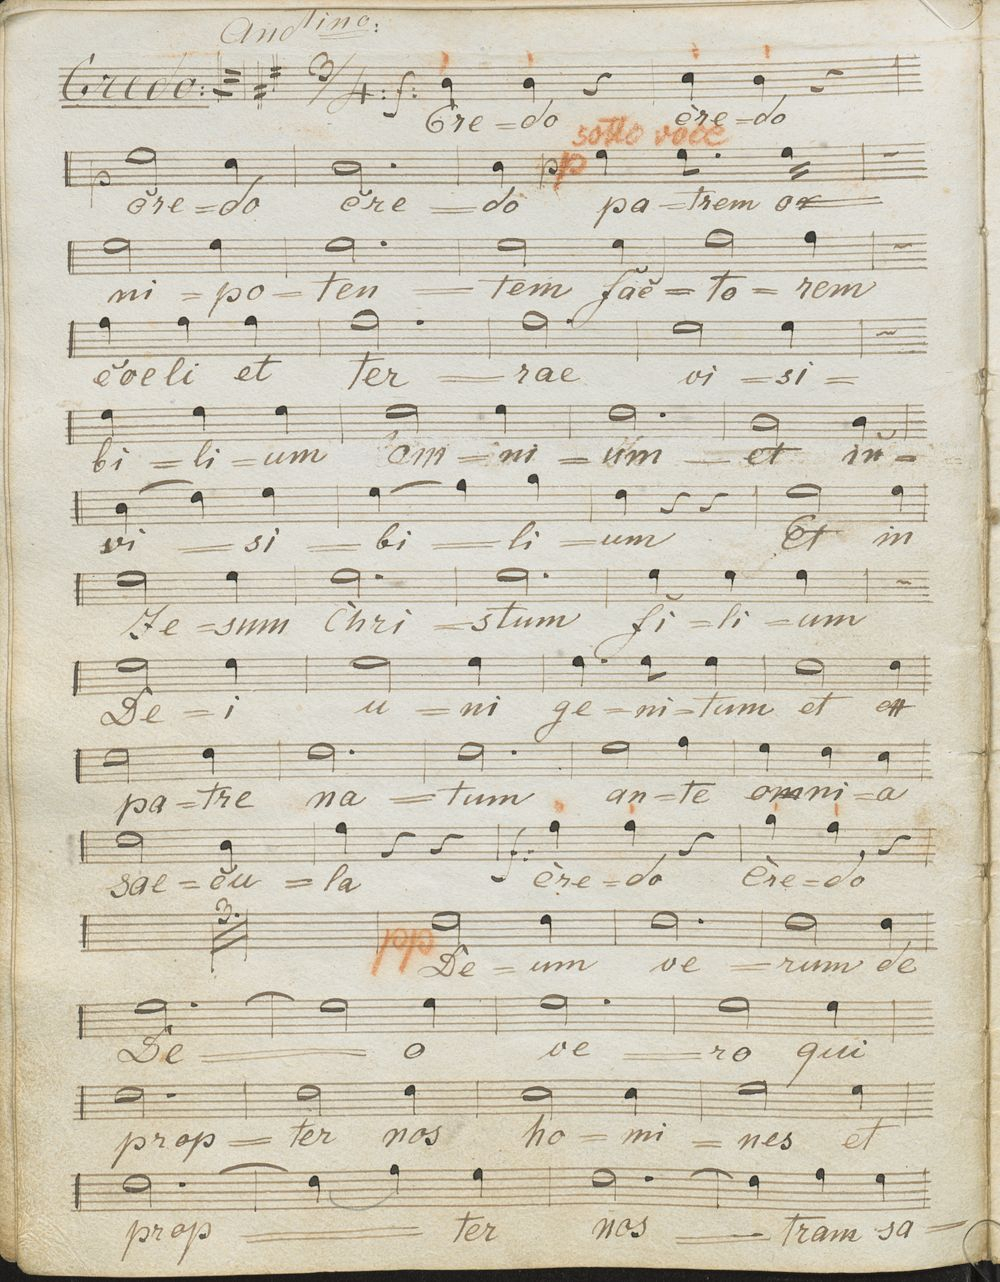 Andtino:
Credo: 3/4: f:
Cre=do cre=do
sotto voce
p p p
cre=do cre=do pa=trem o=
ni=po=ten=tem fac=to=rem
coeli et ter=rae vi=si=
bi=li=um om=ni=um et in=
vi=si=bi=li=um Et in
Je=sum Chri=stum fi=li=um
De=i u=ni ge=ni=tum et
pa=tre na=tum an=te omni=a
f:
sae=cu=la cre=do Cre=do
3.
pp
De=um ve=rum de
De=o ve=ro qui
prop=ter nos ho=mi=nes et
prop=ter nos=tram sa=